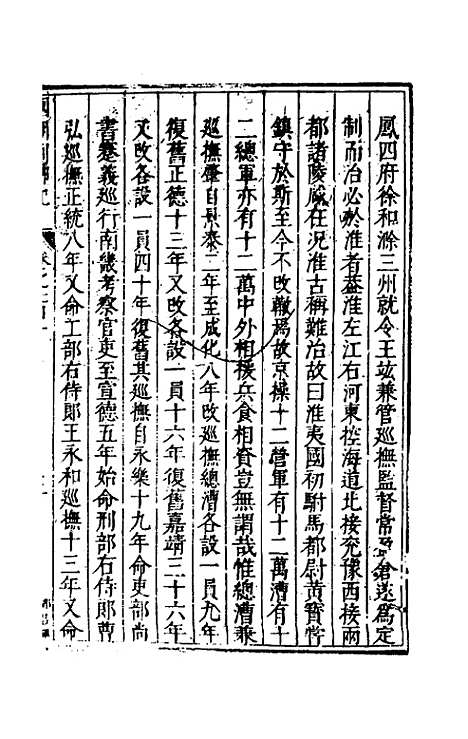 鳳四府徐和滁三州就令王竑兼管巡撫監督常盈倉遂爲定
制而治必於淮者葢淮左江右河東控海道北接兖豫西接兩
都諸陵咸在況淮古稱難治故曰淮夷國初駙馬都尉黃寶嘗
鎮守於斯至今不改轍焉故京操十二營軍有十二萬漕有十
二總軍亦有十二萬中外相維兵食相資豈無謂哉惟總漕兼
巡撫肇自景泰二年至成化八年改巡撫總漕各設一員九年
復舊正德十三年又改各設一員十六年復舊嘉靖三十六年
又改各設一員四十年復舊其巡撫自永樂十九年命吏部尚
書蹇義巡行南畿考察官吏至宣德五年始命刑部右侍郎曹
弘巡撫正統八年又命工部右侍郎王永和巡撫十三年又命